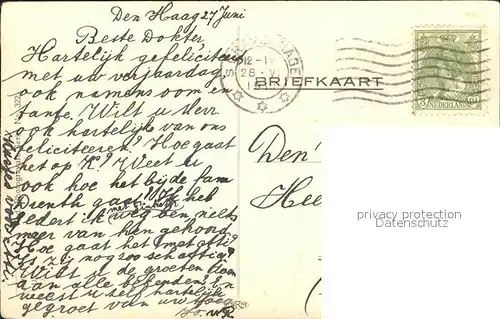 Den Haag 27 Juni
Beste Dokter,
Hartelijk gefeliciteerd
met uw verjaardag,
ook namens oom en
tante. Wilt u Mevr
ook hartelijk van ons
feliciteeren? Hoe gaat
het op K? Weet u
ook hoe het bij de fam
Drenth gaat?
sedert ik weg ben niets
meer van hen gehoord
Hoe gaat het met
Is zij nog zoo schattig?
Wilt u de groeten doen
aan alle bekenden? En
weest u zelf hartelijk
gegroet van uw
12-1V
26 VI
BRIEFKAART
NEDERLAND
Den
privacy protection
Datenschutz